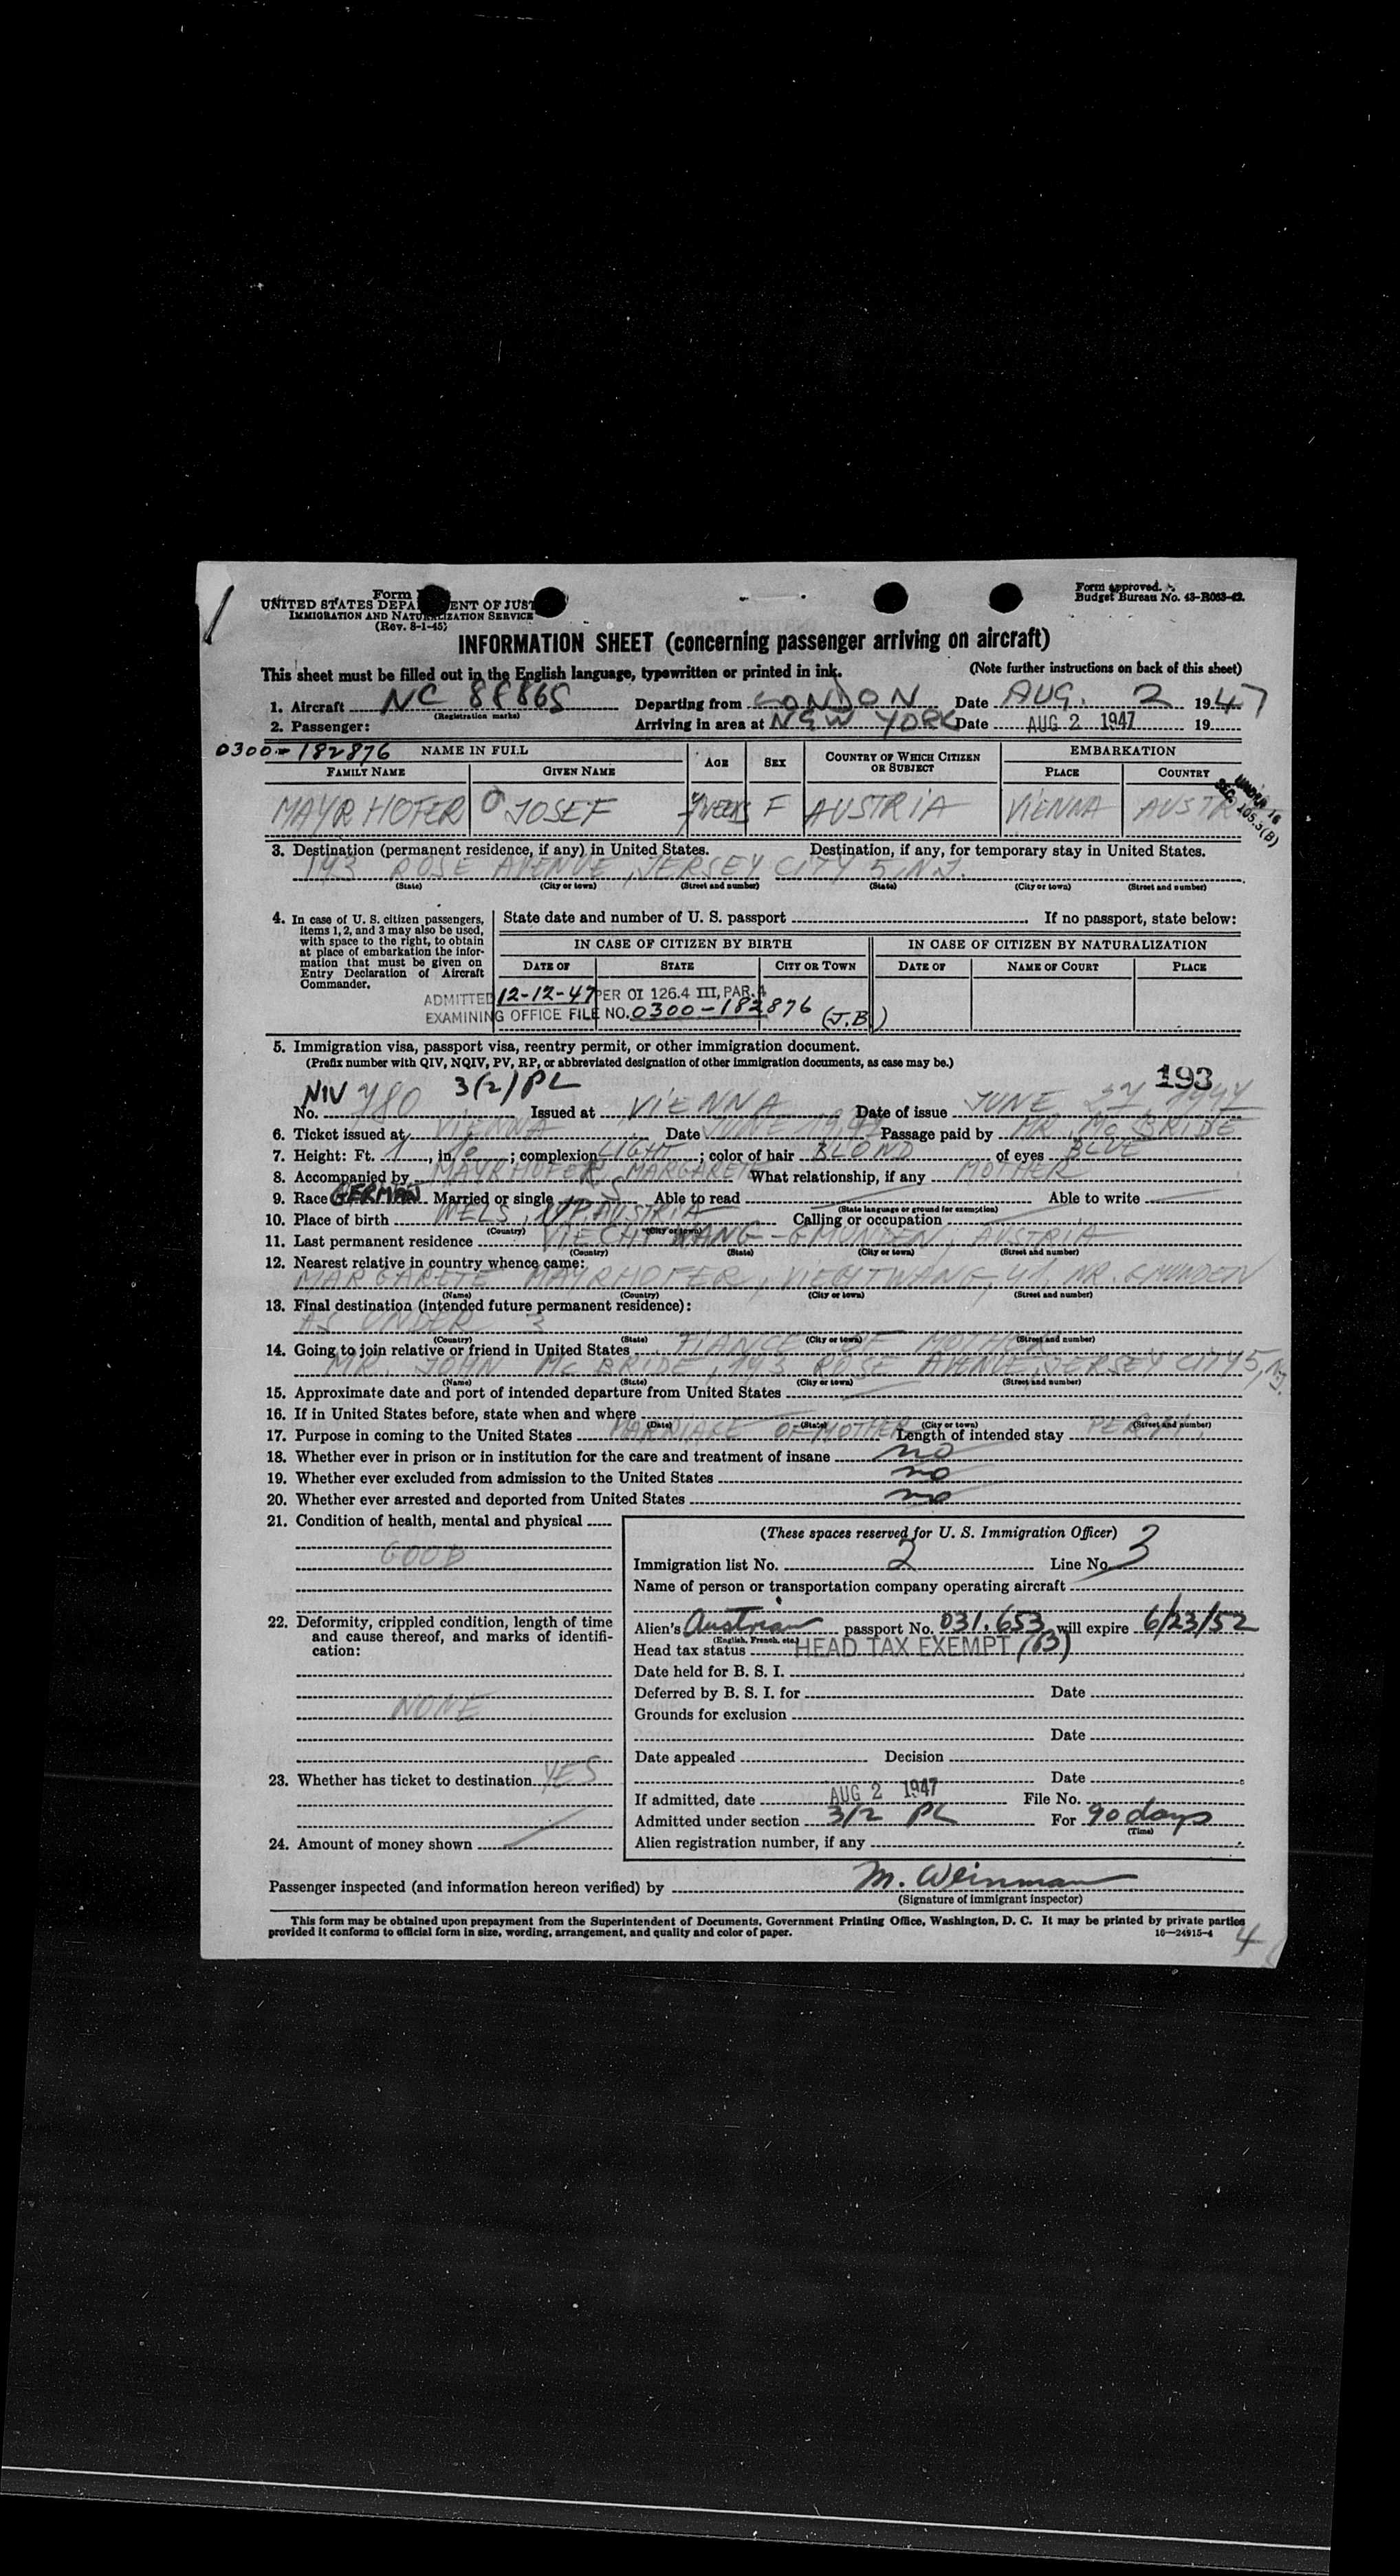 Form
UNITED STATES DEPA ENT OF JUST
IMMIGRATION AND NATURALIZATION SERVICE
(Rev. 8-1-45)
Form approved.
Budget Bureau No. 43-R063-42.
INFORMATION SHEET (concerning passenger arriving on aircraft)
This sheet must be filled out in the English language, typewritten or printed in ink. (Note further instructions on back of this sheet)
1. Aircraft NC 88865 Departing from LONDON Date AUG. 2 1947
(Registration marks)
2. Passenger: Arriving in area at NEW YORK Date AUG 2 1947 19
0300-182876 NAME IN FULL AGE SEX COUNTRY OF WHICH CITIZEN OR SUBJECT EMBARKATION
FAMILY NAME GIVEN NAME PLACE COUNTRY
MAYRHOFER JOSEF WEEKS F AUSTRIA VIENNA AUSTR
UNDER 16
SEC. 105.3(B)
3. Destination (permanent residence, if any) in United States. Destination, if any, for temporary stay in United States.
193 ROSE AVENUE, JERSEY CITY 5, N.J.
(State) (City or town) (Street and number) (State) (City or town) (Street and number)
4. In case of U. S. citizen passengers, items 1, 2, and 3 may also be used, with space to the right, to obtain at place of embarkation the information that must be given on Entry Declaration of Aircraft Commander.
State date and number of U. S. passport If no passport, state below:
IN CASE OF CITIZEN BY BIRTH IN CASE OF CITIZEN BY NATURALIZATION
DATE OF STATE CITY OR TOWN DATE OF NAME OF COURT PLACE
ADMITTED 12-12-47 PER OI 126.4 III, PAR. 4
EXAMINING OFFICE FILE NO. 0300-182876 (J.B.)
5. Immigration visa, passport visa, reentry permit, or other immigration document.
(Prefix number with QIV, NQIV, PV, RP, or abbreviated designation of other immigration documents, as case may be.)
193
NIV 3(2) PL
No. 780 Issued at VIENNA Date of issue JUNE 27 1947
6. Ticket issued at VIENNA Date JUNE 1947 Passage paid by MR. MC BRIDE
7. Height: Ft. 1, in. 10; complexion LIGHT; color of hair BLOND of eyes BLUE
8. Accompanied by MAYRHOFER MARGARETE What relationship, if any MOTHER
9. Race GERMAN Married or single S Able to read Able to write
(State language or ground for exemption)
10. Place of birth WELS, UP. AUSTRIA Calling or occupation
(Country) (City or town)
11. Last permanent residence VIECHTWANG - GMUNDEN, AUSTRIA
(Country) (State) (City or town) (Street and number)
12. Nearest relative in country whence came:
MARGARETE MAYRHOFER, VIECHTWANG 41, NR. GMUNDEN
(Name) (Country) (City or town) (Street and number)
13. Final destination (intended future permanent residence):
AS UNDER 3
(Country) (State) (City or town) (Street and number)
14. Going to join relative or friend in United States FIANCE OF MOTHER
MR. JOHN MC BRIDE, 193 ROSE AVENUE, JERSEY CITY 5, N.J.
(Name) (State) (City or town) (Street and number)
15. Approximate date and port of intended departure from United States
16. If in United States before, state when and where
(Date) (State) (City or town) (Street and number)
17. Purpose in coming to the United States MARRIAGE OF MOTHER Length of intended stay PERM.
18. Whether ever in prison or in institution for the care and treatment of insane no
19. Whether ever excluded from admission to the United States no
20. Whether ever arrested and deported from United States no
21. Condition of health, mental and physical
GOOD
22. Deformity, crippled condition, length of time and cause thereof, and marks of identification:
NONE
23. Whether has ticket to destination YES
24. Amount of money shown
(These spaces reserved for U. S. Immigration Officer)
Immigration list No. 2 Line No. 3
Name of person or transportation company operating aircraft
Alien's Austrian passport No. 031.653 will expire 6/23/52
(English, French, etc.)
Head tax status HEAD TAX EXEMPT (B)
Date held for B. S. I.
Deferred by B. S. I. for Date
Grounds for exclusion
Date
Date appealed Decision
Date
If admitted, date AUG 2 1947 File No.
Admitted under section 3/2 PL For 90 days
(Time)
Alien registration number, if any
Passenger inspected (and information hereon verified) by M. Weinman
(Signature of immigrant inspector)
This form may be obtained upon prepayment from the Superintendent of Documents, Government Printing Office, Washington, D. C. It may be printed by private parties
provided it conforms to official form in size, wording, arrangement, and quality and color of paper. 16—24915-4
4